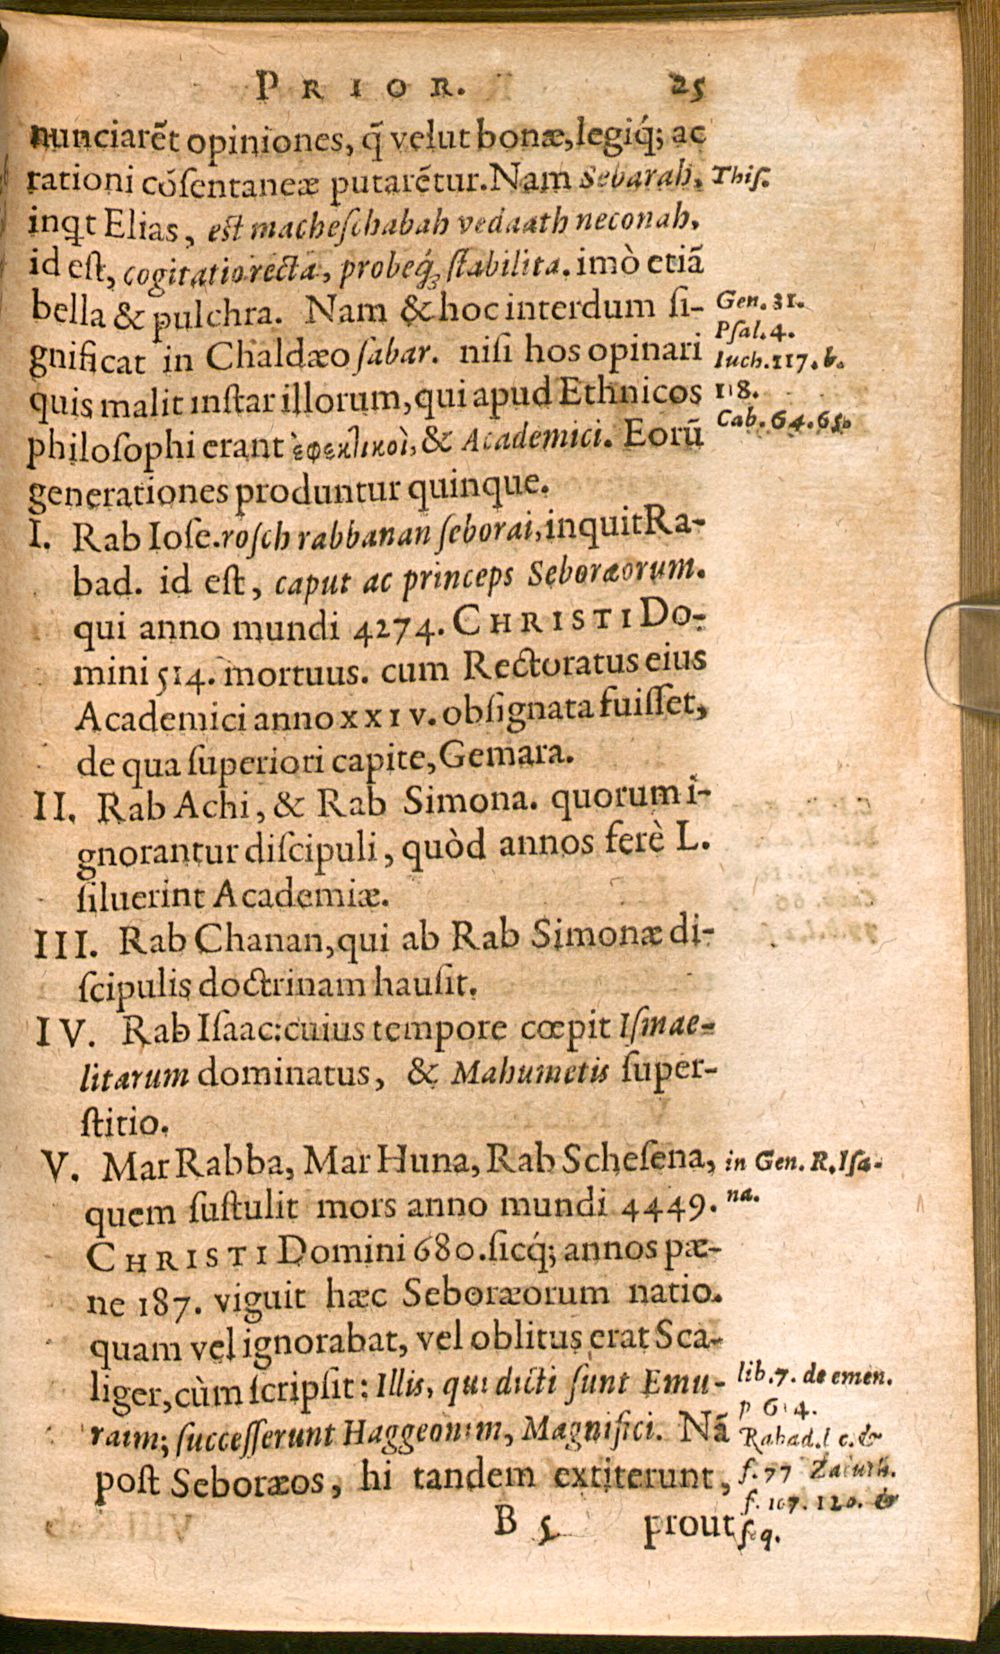 PRIOR. 25
nunciarẽt opiniones, q̃ velut bonæ, legiq́; ac
rationi cõsentaneæ putarẽtur. Nam Sebarah,
Thiſ.
inqt Elias, eſt macheſchabah vedaath neconah,
id eſt, cogitatio recta, probeq́; ſtabilita. imò etiã
bella & pulchra. Nam & hoc interdum ſi-
Gen. 31.
Pſal. 4.
gnificat in Chaldæo ſabar. niſi hos opinari
Iuch. 117. b.
quis malit inſtar illorum, qui apud Ethnicos
118.
Cab. 64. 65.
philoſophi erant ἐφεκλικοὶ, & Academici. Eorũ
generationes produntur quinque.
I. Rab Ioſe. roſch rabbanan ſeborai, inquit Ra-
bad. id eſt, caput ac princeps Seboræorum.
qui anno mundi 4274. CHRISTI Do-
mini 514. mortuus. cum Rectoratus eius
Academici anno XXIV. obſignata fuiſſet,
de qua ſuperiori capite, Gemara.
II. Rab Achi, & Rab Simona. quorum i-
gnorantur diſcipuli, quòd annos ferè L.
ſiluerint Academiæ.
III. Rab Chanan, qui ab Rab Simonæ di-
ſcipulis doctrinam hauſit.
IV. Rab Iſaac: cuius tempore cœpit Iſmae-
litarum dominatus, & Mahumetis ſuper-
ſtitio.
V. Mar Rabba, Mar Huna, Rab Scheſena,
in Gen. R. Iſa-
na.
quem ſuſtulit mors anno mundi 4449.
CHRISTI Domini 680. ſicq́; annos pæ-
ne 187. viguit hæc Seboræorum natio.
quam vel ignorabat, vel oblitus erat Sca-
liger, cùm ſcripſit: Illis, qui dicti ſunt Emu-
lib. 7. de emen.
p 614.
raim; ſucceſſerunt Haggeonim, Magnifici. Nã
Rabad. l c. &
poſt Seboræos, hi tandem extiterunt,
f. 77 Zacuth.
f. 107. 120. &
ſeq.
B 5 prout